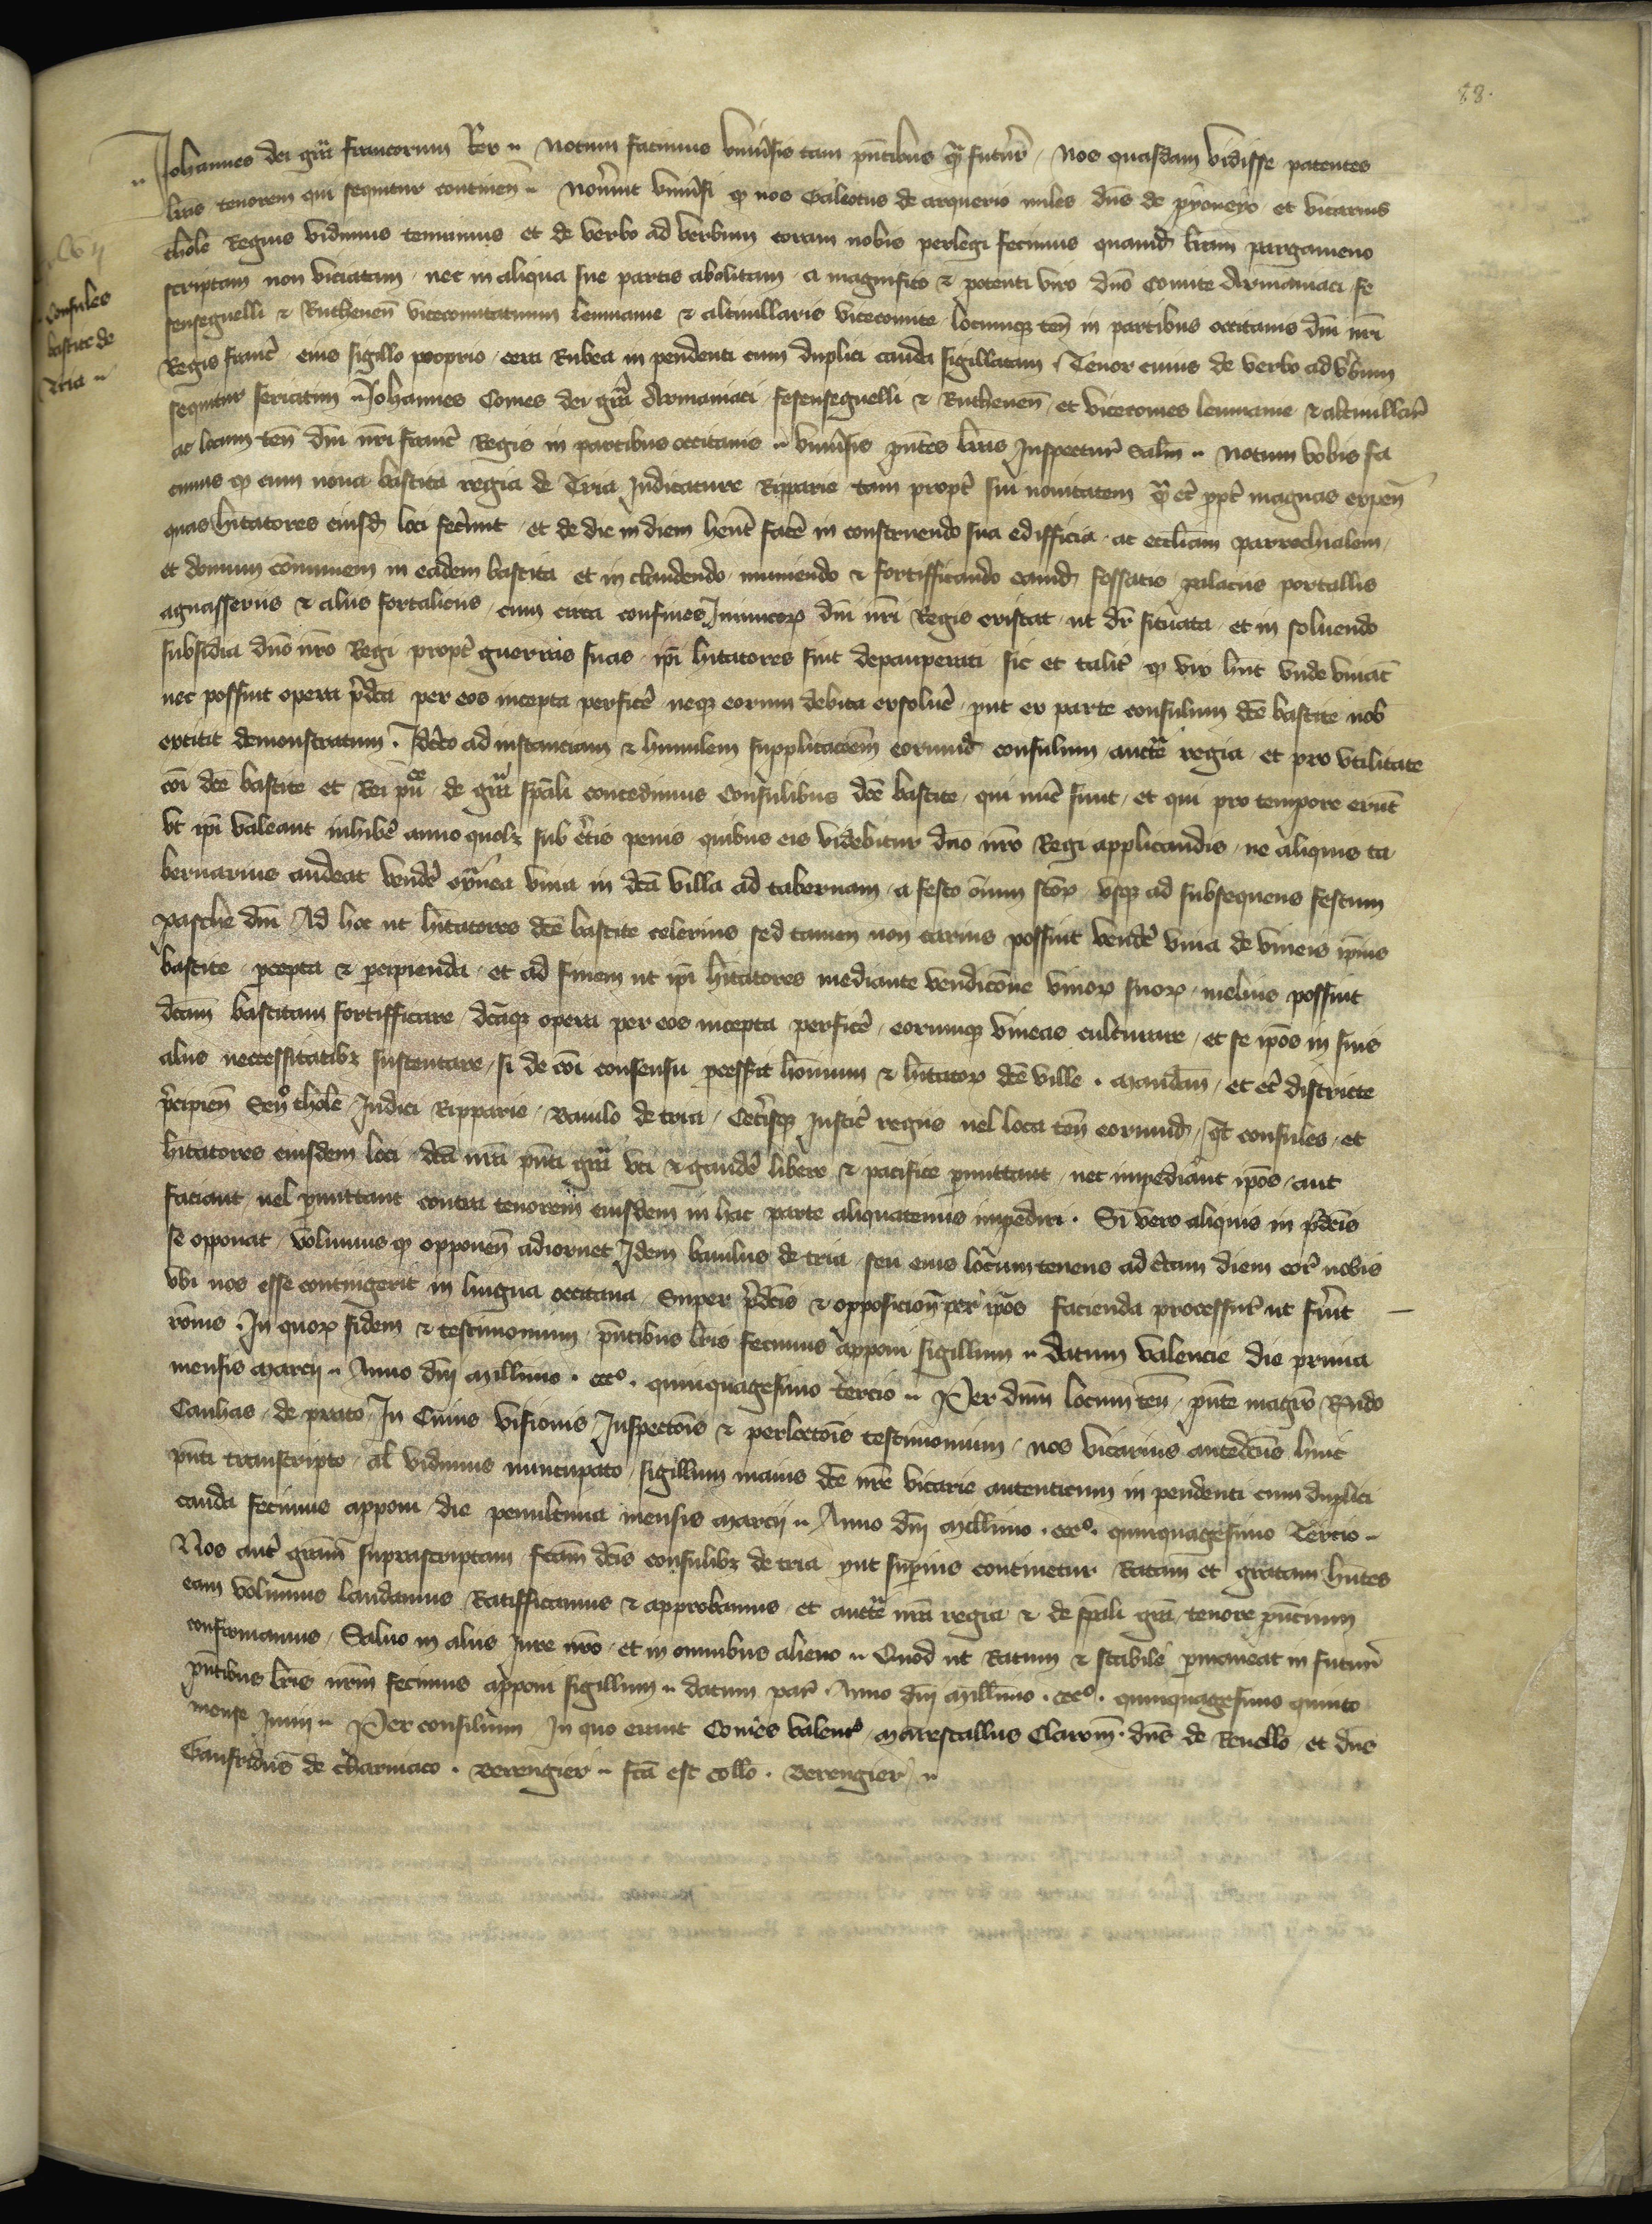 88.
Consules
bastite de
Tria
Johannes dei gra francorum Rex Notum facimus universis tam pntibus q̄ futur Nos quasdam vidisse patentes
lras tenorem qui sequitur continen Noverint universi q nos Galeotus de miles dns de et vicarius
thole Regius vidimus tenuimus et de verbo ad verbum coram nobis perlegi fecimus quamd lram pargameno
scriptam non viciatam nec in aliqua sue partis abolitam a magnifico & potenti viro dno Comite Armaniaci fe
senseguelli & Ruthenen vicecomitatuum leumanie & altivillaris vicecomite locumq ten in partibus occitanis dni nri
Regis franc eius sigillo proprio cera Rubea in pendenti cum duplici cauda sigillatam Tenor cuius de verbo ad verbum
sequitur seriatim Johannes Comes dei gra Armaniaci fesenseguelli & Ruthenen et vicecomes leumanie & altivillar
ac locum ten dni nri franc Regis in partibus occitanis universis pntes lras Inspectur Salm Notum vobis fa
cimus q cum nova bastita regia de Tria Judicature Ripparie tam propt sui novitatem q̄ et ppt magnas expen
quas hitatores eiusd loci fecerunt et de die in diem hent face in construendo sua edifficia ac eccliam parrochialem
et domum communem in eadem bastita et in claudendo muniendo & fortifficando eamd fossatis palacus portallis
aguasseriis & aliis fortaliciis cum circa confines Inimicor dni nri Regis existat ut dr situata et in solvendo
subsidia dno nro Regi propt guerras suas ipi hitatores sint depauperati sic et talit q vix hnt unde vivat
nec possint opera pdca per eos incepta perfice neq eorum debita exsolve put ex parte consulum dce bastite nob
extitit demonstratum Idcirco ad instanciam & humilem supplicacoem eorumd consulum auctte regia et pro utilitate
coi dce bastite et Rei puce de gra spali concedimus Consulibus dce bastite qui nuc sunt et qui pro tempore erut
ut ipi valeant inhibe anno quolz sub certis penis quibus eis videbitur dno nro Regi applicandis ne aliquis ta
bernarius audeat vende extranea vina in dca villa ad tabernam a festo oium scor usq ad subsequens festum
pasche dni Ad hoc ut hitatores dce bastite celerius sed tamen non carius possint vende vina de vineis ipius
bastite pcepta & pcipienda et ad finem ut ipi hitatores mediante vendicone vinor suor melius possint
dcam bastitam fortifficare dcaq opera per eos incepta perfice eorumq vineas cultivare et se ipos in suis
aliis necessitatibz sustentare si de coi consensu pcessit hominum & hitator dce ville mandam et et districte
pcipien Sen thole Judici Ripparie Baiulo de tria Cetisq Justic regiis vel loca ten eorumd qt consules et
hitatores eiusdem loci dca nra pnti gra uti & gaude libere & pacifice pmittant nec impediant ipos aut
faciant vel pmittant contra tenorem eiusdem in hac parte aliquatenus impediri Si vero aliquis in pdcis
se opponat volumus q opponen adiornet Idem baiulus de tria seu eius locumtenens ad ctam diem cor nobis
ubi nos esse contingerit in lingua occitana Super pdcis & opposicion per ipos facienda processur ut fuerit
ronis In quor fidem & testimonium pntibus lris fecimus apponi sigillum datum valencie die prima
mensis marcii Anno dni millimo ccco quinquagesimo tercio Per dnm locum ten pnte magro Rndo
Canhas de prato In Cuius visionis Inspectois & perlectois testimonium nos vicarius antedcus huic
pnti transcripto al vidimus nuncupato sigillum maius dce nre vicarie autenticum in pendenti cum duplici
cauda fecimus apponi die penultima mensis marcii Anno dni millimo ccco quinquagesimo Tercio
Nos aut gram suprascriptam fcam dcis consulibz de tria put supius continetur Ratam et gratam hntes
eam volumus laudamus Ratifficamus & approbamus et auctte nra regia & de spali gra tenore pncium
confirmamus Salvo in aliis Jure nro et in omnibus alieno Quod ut Ratum & stabile pmaneat in futur
pntibus lris nrm fecimus apponi sigillum datum par Anno dni millimo ccco quinquagesimo quinto
mense Junii Per consilium In quo erant Comes valent marescallus Clarom dns de Revello et dns
Gaufridus de charniaco Berengier fca est collo Berengier